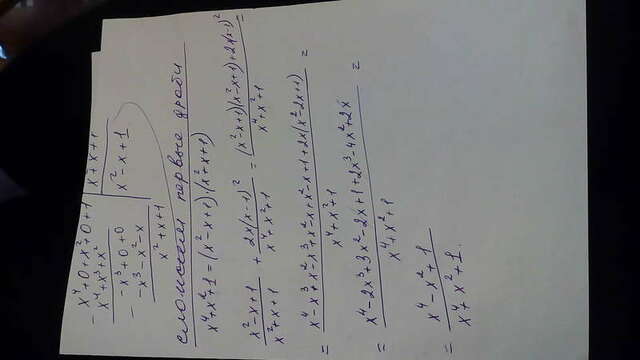 - x⁴+0+x²+0+1 | x²+x+1
x⁴+x³+x² | x²-x+1
- -x³+0+0
-x³-x²-x
x²+x+1
сложием первые дроби
x⁴+x²+1=(x²-x+1)·(x²+x+1)
(x²-x+1)/(x²+x+1) + 2x(x-1)²/(x⁴+x²+1) = ((x²-x+1)(x²-x+1)+2x(x-1)²)/(x⁴+x²+1) =
= (x⁴-x³+x²-x³+x²-x+x²-x+1+2x(x²-2x+1))/(x⁴+x²+1) =
= (x⁴-2x³+3x²-2x+1+2x³-4x²+2x)/(x⁴+x²+1) =
= (x⁴-x²+1)/(x⁴+x²+1).